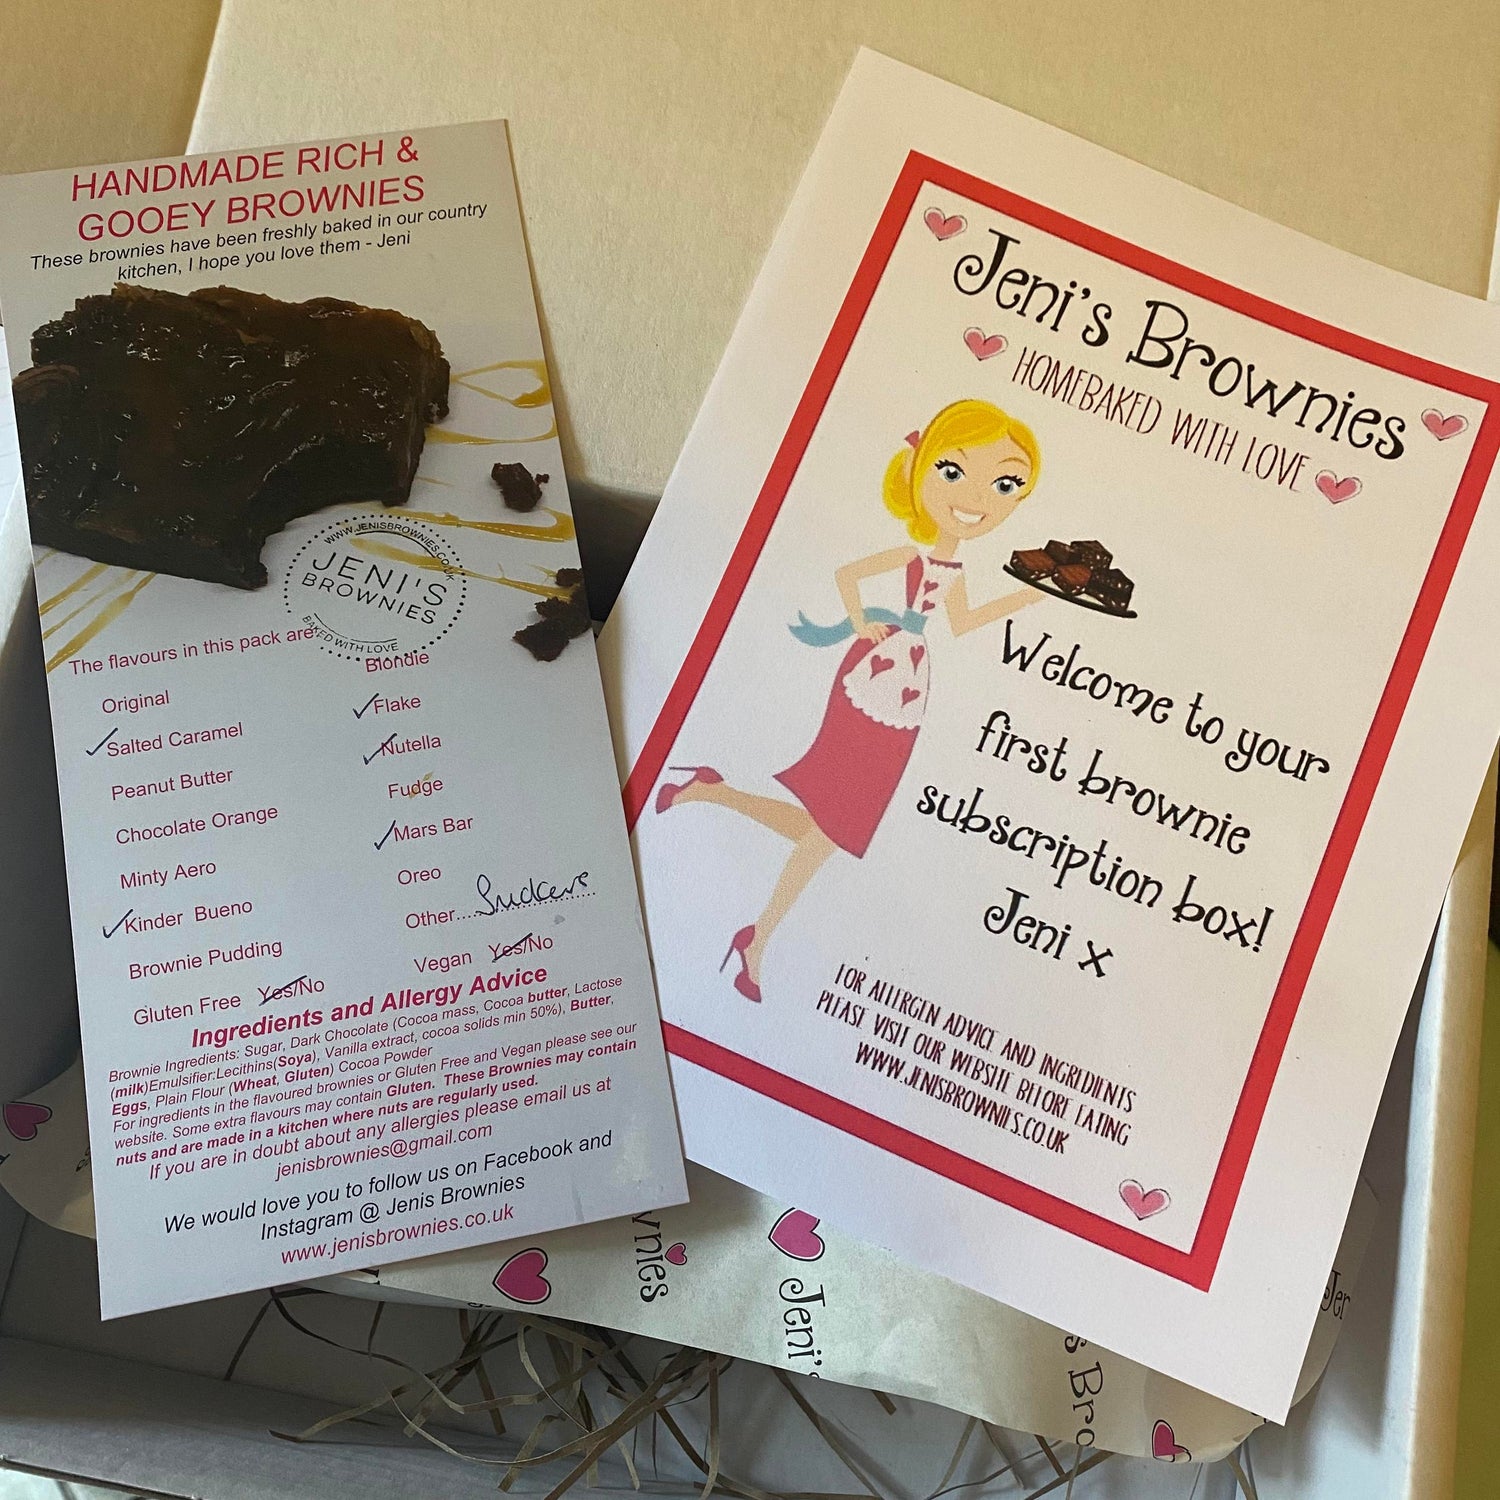 HANDMADE RICH &
GOOEY BROWNIES
These brownies have been freshly baked in our country
kitchen, I hope you love them - Jeni
WWW.JENISBROWNIES.CO.UK
JENI'S
BROWNIES
BAKED WITH LOVE
The flavours in this pack are:
Original
✓Salted Caramel
Peanut Butter
Chocolate Orange
Minty Aero
✓Kinder Bueno
Brownie Pudding
Gluten Free Yes/No
Blondie
✓Flake
✓Nutella
Fudge
✓Mars Bar
Oreo
Other....
Vegan Yes/No
Ingredients and Allergy Advice
Brownie Ingredients: Sugar, Dark Chocolate (Cocoa mass, Cocoa butter, Lactose
(milk)Emulsifier:Lecithins(Soya), Vanilla extract, cocoa solids min 50%), Butter,
Eggs, Plain Flour (Wheat, Gluten) Cocoa Powder
For ingredients in the flavoured brownies or Gluten Free and Vegan please see our
website. Some extra flavours may contain Gluten. These Brownies may contain
nuts and are made in a kitchen where nuts are regularly used.
If you are in doubt about any allergies please email us at
jenisbrownies@gmail.com
We would love you to follow us on Facebook and
Instagram @ Jenis Brownies
www.jenisbrownies.co.uk
Jeni's Brownies
HOMEBAKED WITH LOVE
Welcome to your
first brownie
subscription box!
Jeni x
FOR ALLERGEN ADVICE AND INGREDIENTS
PLEASE VISIT OUR WEBSITE BEFORE EATING
WWW.JENISBROWNIES.CO.UK
wnies
Jeni's
s Bro
Jer